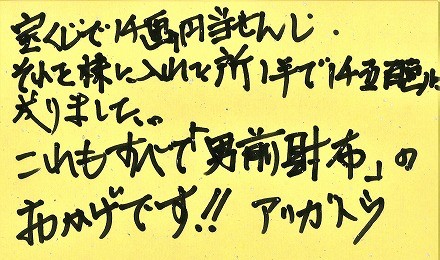 宝くじで1千萬円当せんし.
それを株に入れた所1年で1千五百萬に
成りました。
これもすべて「男前財布」の
おかげです!! アリガトウ